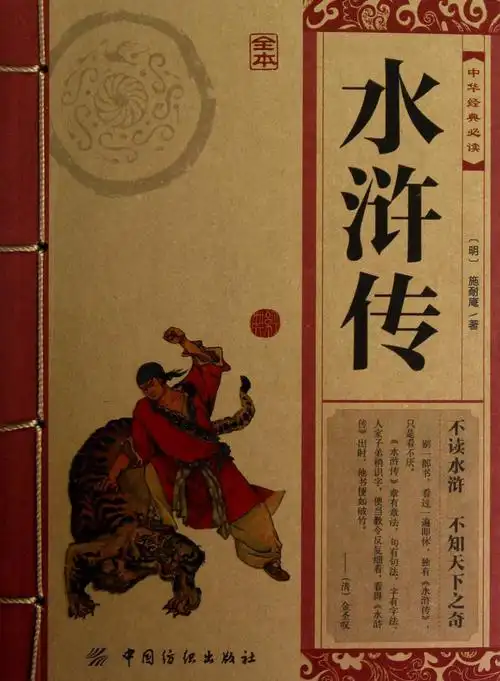 全本
中华经典必读
水浒传
〔明〕施耐庵/著
不读水浒 不知天下之奇
别一部书，看过一遍即休，独有《水浒传》，
只是看不厌。
《水浒传》章有章法，句有句法，字有字法，
人家子弟稍识字，便当教令反复细看，看得《水浒
传》出时，他书便如破竹。
——〔清〕金圣叹
中国纺织出版社